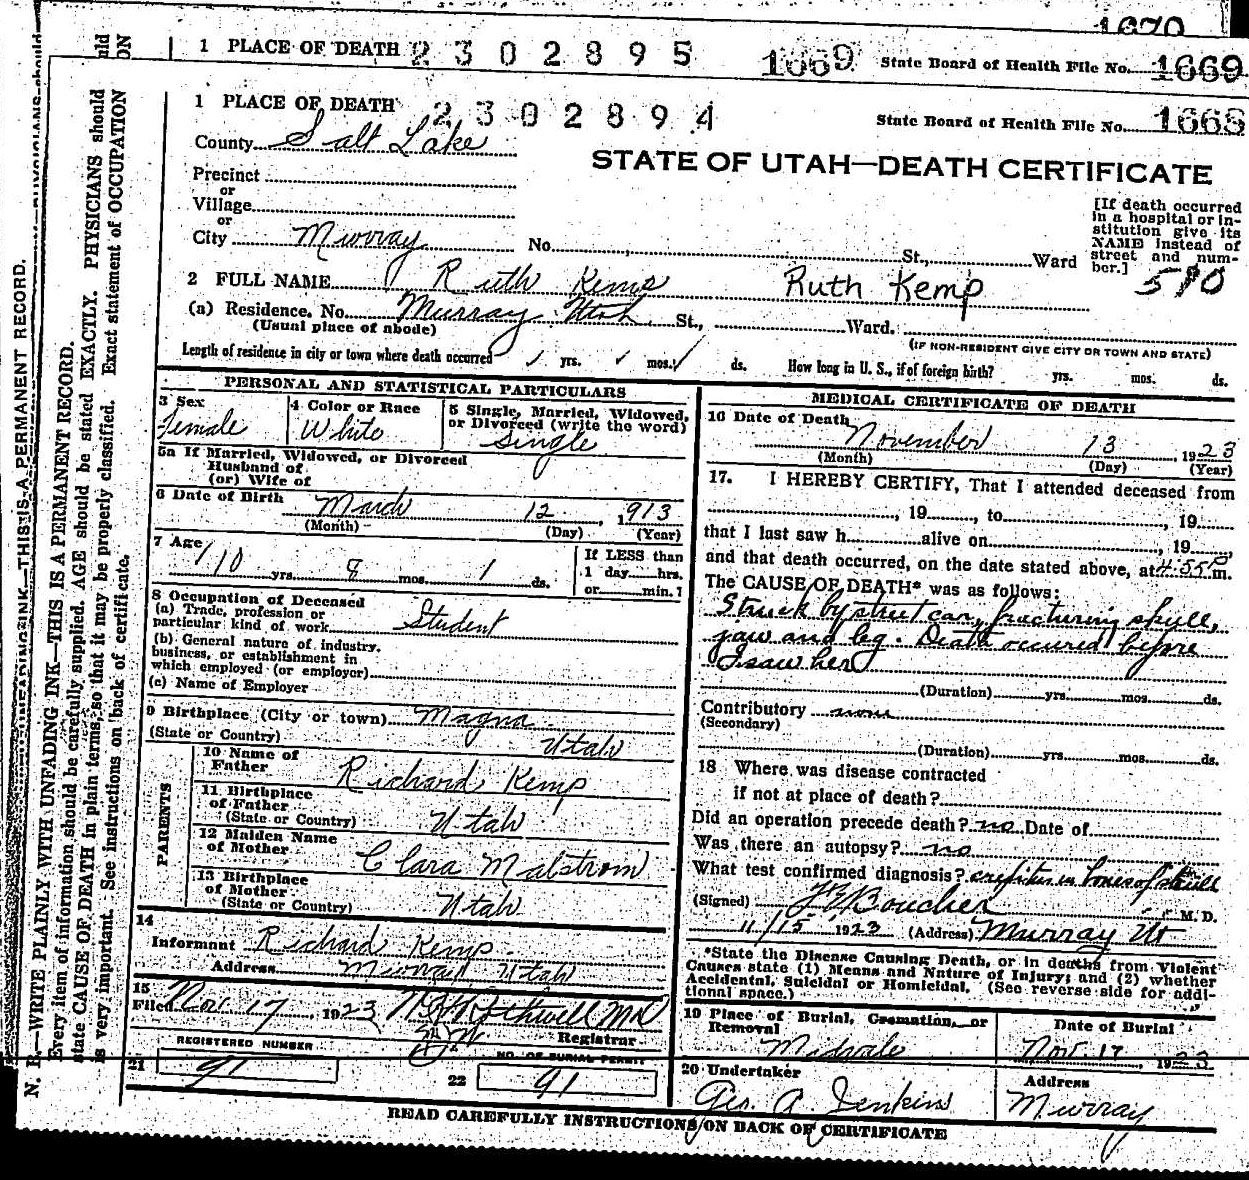 1670
1 PLACE OF DEATH 2302895 1669 State Board of Health File No. 1669
1 PLACE OF DEATH 2302894 State Board of Health File No. 1668
County Salt Lake
STATE OF UTAH—DEATH CERTIFICATE
Precinct
or
Village
or
City Murray No. St., Ward
[If death occurred
in a hospital or in-
stitution give its
NAME instead of
street and num-
ber.]
590
2 FULL NAME Ruth Kemp Ruth Kemp
(a) Residence. No. Murray Utah St., Ward.
(Usual place of abode) (IF NON-RESIDENT GIVE CITY OR TOWN AND STATE)
Length of residence in city or town where death occurred yrs. mos. ds. How long in U. S., if of foreign birth? yrs. mos. ds.
PERSONAL AND STATISTICAL PARTICULARS
3 Sex
Female
4 Color or Race
White
5 Single, Married, Widowed,
or Divorced (write the word)
Single
5a If Married, Widowed, or Divorced
Husband of
(or) Wife of
6 Date of Birth March 12, 1913
(Month) (Day) (Year)
7 Age
10 yrs. 8 mos. 1 ds.
If LESS than
1 day hrs.
or min.?
8 Occupation of Deceased
(a) Trade, profession or
particular kind of work Student
(b) General nature of industry,
business, or establishment in
which employed (or employer)
(c) Name of Employer
9 Birthplace (City or town) Magna
(State or Country) Utah
PARENTS
10 Name of
Father Richard Kemp
11 Birthplace
of Father
(State or Country) Utah
12 Maiden Name
of Mother Clara Malstrom
13 Birthplace
of Mother
(State or Country) Utah
14
Informant Richard Kemp
Address Murray Utah
15
Filed Nov. 17, 1923
Registrar
REGISTERED NUMBER
21 91
NO. OF BURIAL PERMIT
22 91
MEDICAL CERTIFICATE OF DEATH
16 Date of Death
November 13, 1923
(Month) (Day) (Year)
17. I HEREBY CERTIFY, That I attended deceased from
, 19 , to , 19
that I last saw h alive on , 19
and that death occurred, on the date stated above, at 4:55 P m.
The CAUSE OF DEATH* was as follows:
Struck by street car, fracturing skull,
jaw and leg. Death occured before
I saw her
(Duration) yrs. mos. ds.
Contributory none
(Secondary)
(Duration) yrs. mos. ds.
18 Where was disease contracted
if not at place of death?
Did an operation precede death? no Date of
Was there an autopsy? no
What test confirmed diagnosis? crepitus in bones of skull
(Signed) Boucher M. D.
11/15 1923 (Address) Murray Ut
*State the Disease Causing Death, or in deaths from Violent
Causes state (1) Means and Nature of Injury; and (2) whether
Accidental, Suicidal or Homicidal. (See reverse side for addi-
tional space.)
19 Place of Burial, Cremation, or
Removal
Midvale
Date of Burial
Nov. 17, 1923
20 Undertaker
Geo. A Jenkins
Address
Murray
READ CAREFULLY INSTRUCTIONS ON BACK OF CERTIFICATE
N. B.—WRITE PLAINLY WITH UNFADING INK—THIS IS A PERMANENT RECORD.
Every item of information should be carefully supplied. AGE should be stated EXACTLY. PHYSICIANS should
state CAUSE OF DEATH in plain terms, so that it may be properly classified. Exact statement of OCCUPATION
is very important. See instructions on back of certificate.
THIS IS A PERMANENT RECORD.